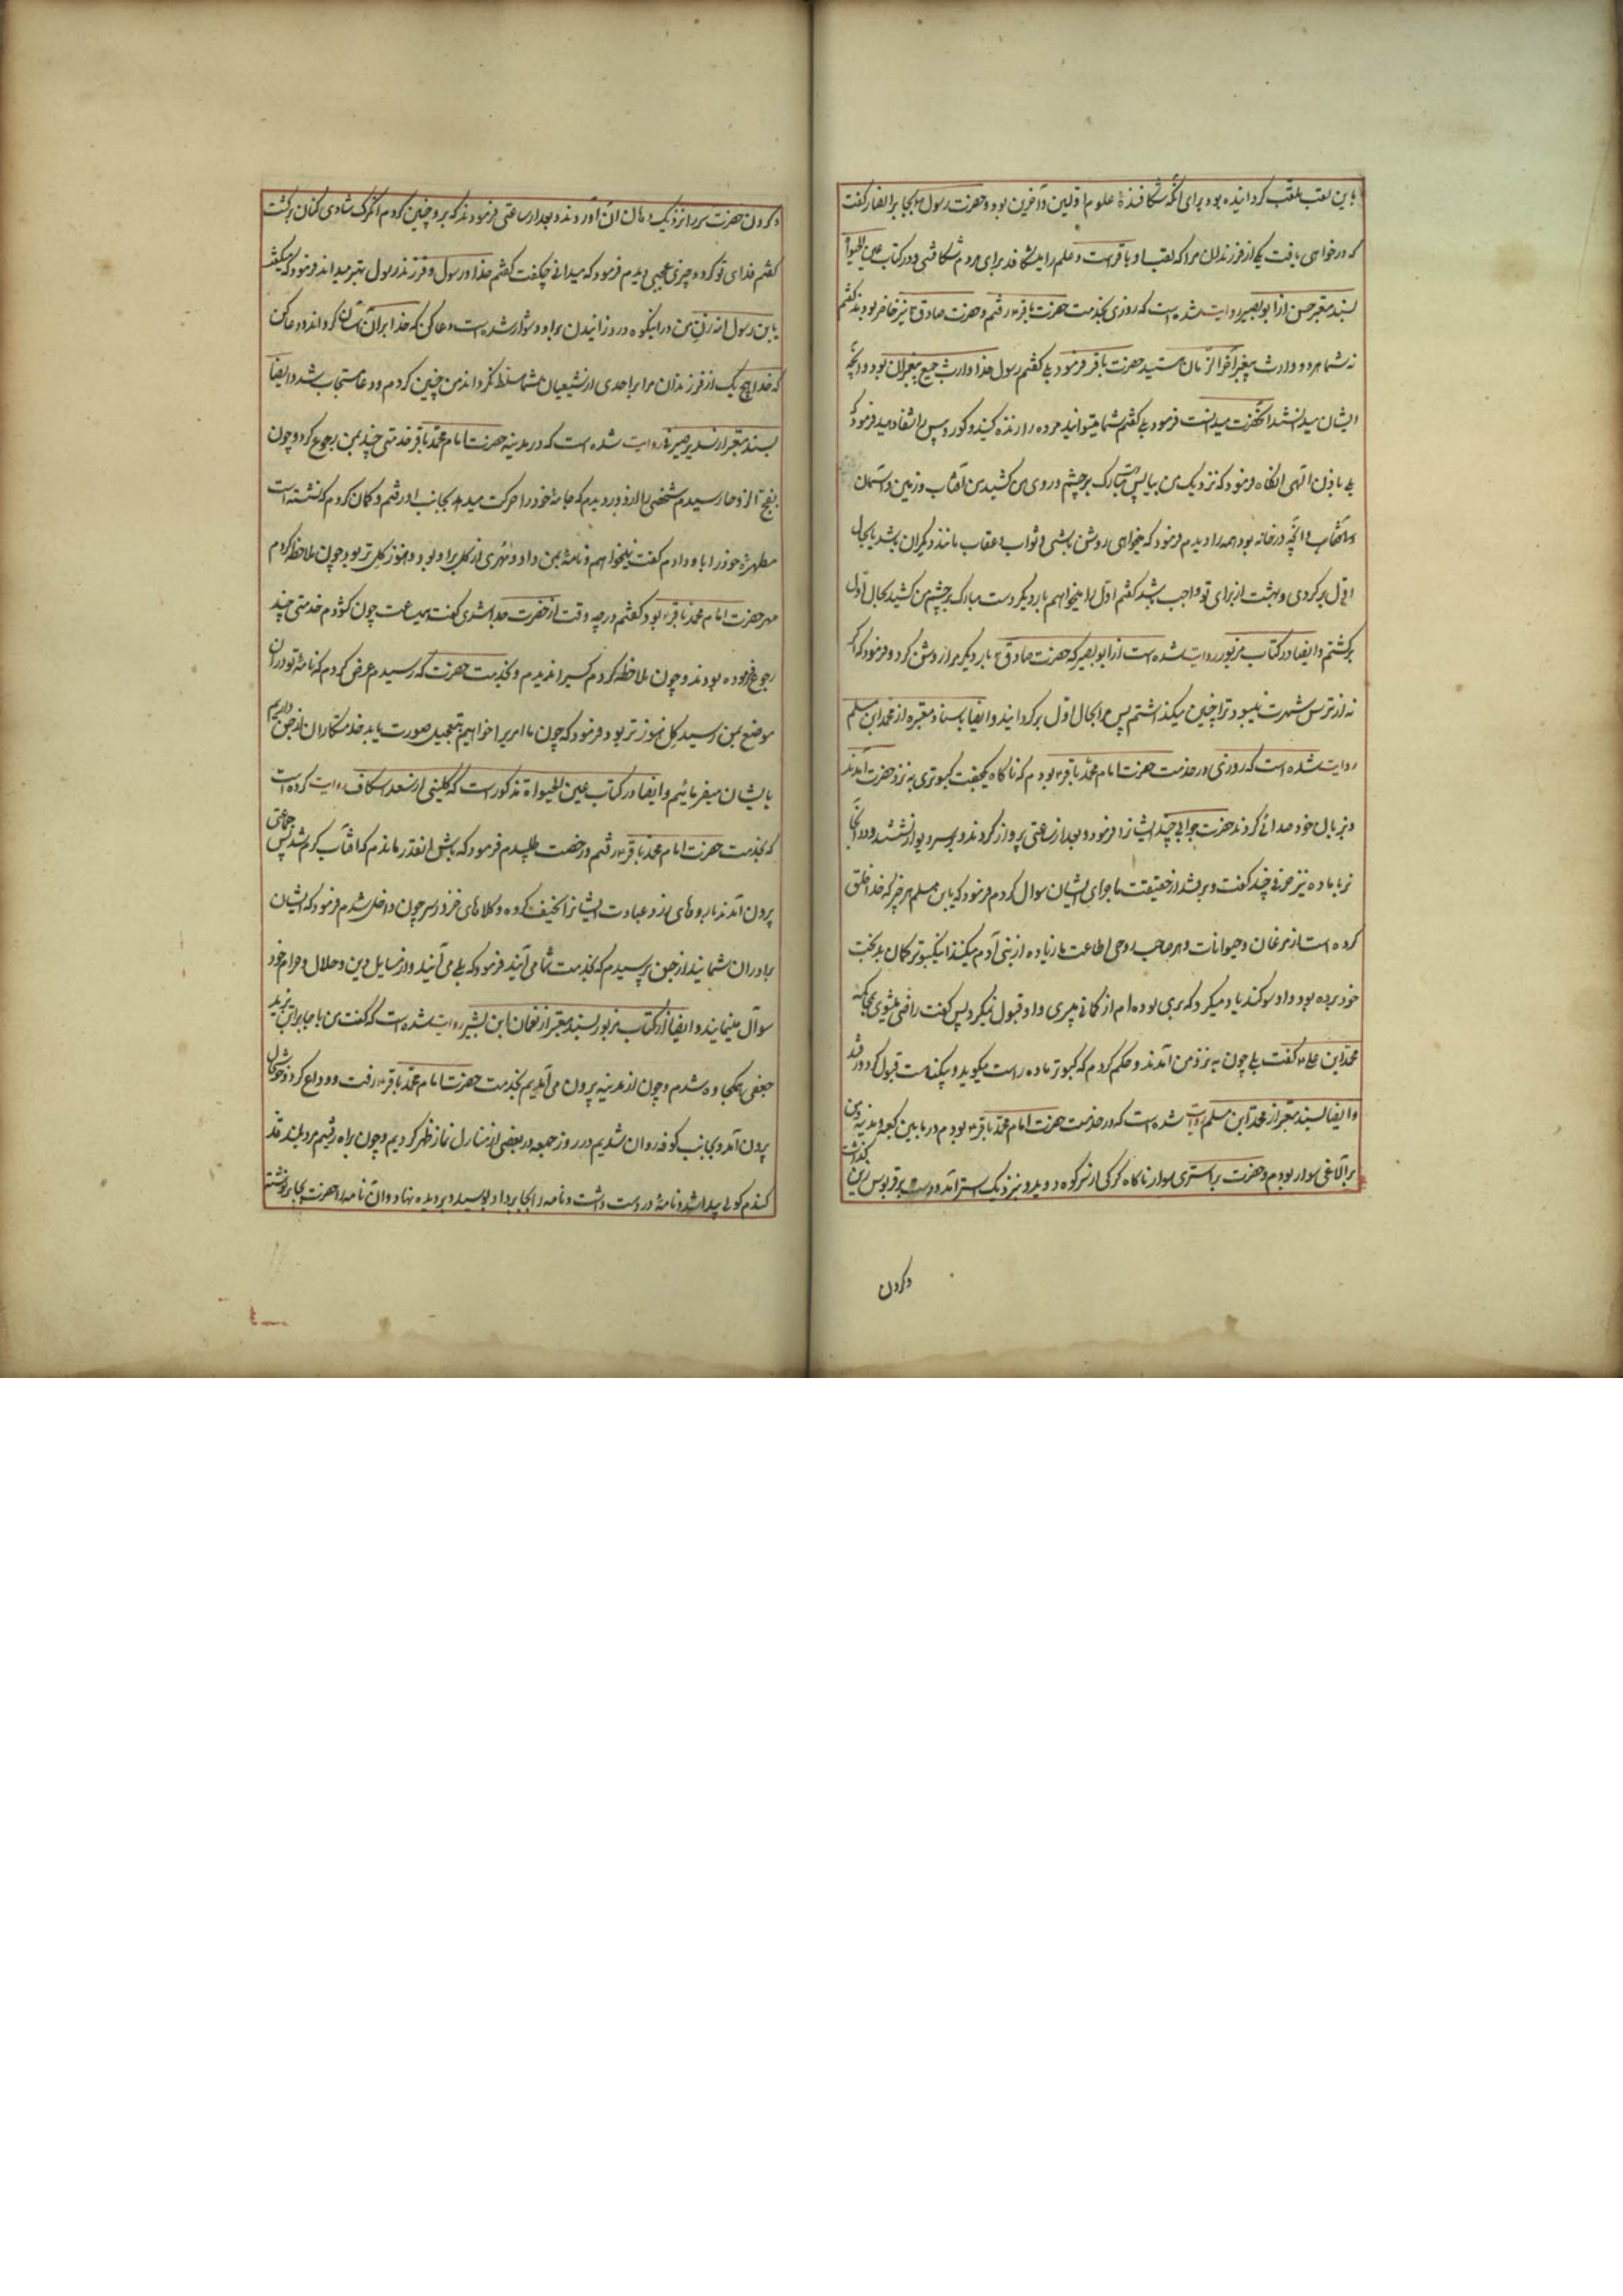 باین لقب ملقب کردانیده بود برای انکه شکافندهٔ علوم اولین و آخرین بود و حضرت رسول بجابر انصار کفت
که در خواهی یافت یکی از فرزندان مرا که لقب او باقر است و علم را میشکافد برای مردم شکافتنی و در کتاب عین الحیوة
بسند معتبر حسن از ابو بصیر روایت شده است که روزی بخدمت حضرت باقر رفتم و حضرت صادق نیز حاضر بودند کفتم
نه شما هر دو وارث پیغمبر آخر الزمان هستید حضرت باقر فرمود بلی کفتم رسول خدا وارث جمیع پیغمبران بود و انچه
ایشان میدانستند آنحضرت میدانست فرمود بلی کفتم شما میتوانید مرده را زنده کنید و کور و پیس را شفا دهید فرمود که
بلی باذن الهی انکاه فرمود که نزدیک من بیا پس دست مبارک بر چشم و روی من کشید من آفتاب و زمین و آسمان
و انچه در خانه بود همه را دیدم فرمود که میخواهی روشن باشی و ثواب و عقاب مانند دیکران باشد یا بحال
اول بر کردی و بهشت از برای تو واجب باشد کفتم اول را میخواهم بار دیکر دست مبارک بر چشم من کشید بحال اول
برکشتم و ایضا در کتاب مزبور روایت شده است از ابو بصیر که حضرت صادق بار دیکر مرا روشن کرد و فرمود که اکر
نه از ترس شهرت میبود ترا چنین میکذاشتم پس مرا بحال اول بر کردانید و ایضا باسناد معتبره از محمد ابن مسلم
روایت شده است که روزی در خدمت حضرت امام محمد باقر بودم که ناکاه یکجفت کبوتری به نزد حضرت آمدند
و بزبان خود صدائی کردند حضرت جوابی چند ایشانرا فرمود و بعد از ساعتی پرواز کردند و بر سر دیوار نشستند و در انجا
نر با ماده نیز حرفی چند کفت و برفتند از حقیقت ماجرای ایشان سوال کردم فرمود که یابن مسلم هر چیز که خدا خلق
کرده است از مرغان و حیوانات و هر صاحب روحی اطاعت ما زیاده از بنی آدم میکنند اینکبوتر کمان بد بجفت
خود برده بود و او سوکند یاد میکرد که بری بوده ام از کمانی میبری و او قبول نمیکرد پس کفت راضی میشوی بمحاکمه
محمد ابن علی کفت بلی چون به نزد من آمدند و حکم کردم که کبوتر ماده راست میکوید و بیکناهست قبول کرد و رفتند
و ایضا بسند معتبر از محمد ابن مسلم روایت شده است که در خدمت حضرت امام محمد باقر بودم در مابین مکه و مدینه و من
بر الاغی سوار بودم و حضرت بر استری سوار ناکاه کرکی از سر کوه دوید و بنزدیک استر آمد و دست بر قربوس زین کذاشت
و کردن
و کردن حضرت سر را نزدیک دهان آن آوردند و بعد از ساعتی فرمودند که برو چنین کردم انکرک شادی کنان برکشت
کفتم فدای تو کردم چیزی عجیبی دیدم فرمود که میدانی چکفت کفتم خدا و رسول و فرزند رسول بهتر میدانند فرمود که میکفت
یابن رسول الله زن من در اینکوه در زائیدن بر او دشوار شده است دعا کن که خدا بر آن آسان کرداند و دعا کن
که خدا هیچ یک از فرزندان مرا بر احدی از شیعیان شما مسلط نکرداند من چنین کردم و دعا مستجاب شد و ایضا
بسند معتبر از سدیر صیرفی روایت شده است که در مدینه حضرت امام محمد باقر خدمتی چند بمن رجوع کرد و چون
بفج الروحا رسیدم شخصی را از دور دیدم که جامهٔ خود را حرکت میدهد بجانب او رفتم و کمان کردم که تشنه است
مطهرهٔ خود را باو دادم کفت نمیخواهم و نامهٔ بمن داد و مهری از کل بر او بود و هنوز کل تر بود چون ملاحظه کردم
مهر حضرت امام محمد باقر بود کفتم در چه وقت از حضرت جدا شدی کفت همین ساعت چون کشودم خدمتی چند
رجوع فرموده بودند و چون ملاحظه کردم کسیرا ندیدم و بخدمت حضرت که رسیدم عرض کردم که نامهٔ تو در ان
موضع بمن رسید کل هنوز تر بود فرمود که چون ما امریرا خواهیم بتعجیل صورت یابد خدمتکاران از جن داریم
بایشان میفرمائیم و ایضا در کتاب عین الحیواة مذکور است که کلینی از سعد اسکاف روایت کرده است
که بخدمت حضرت امام محمد باقر رفتم و رخصت طلبیدم فرمود که باش انقدر ماندم که آفتاب کرم شد پس جماعتی
بیرون آمدند با روهای زرد عبادت ایشانرا نحیف کرده و کلاهای خز در سر چون داخل شدم فرمود که ایشان
برادران شمایند از جن پرسیدم که بخدمت شما می آیند فرمود که بلی می آیند و از مسایل دین و حلال و حرام خود
سوال مینمایند و ایضا از کتاب مزبور بسند معتبر از نعمان ابن بشیر روایت شده است که کفت من با جابر ابن یزید
جعفی همکجاوه شدم و چون از مدینه بیرون می آمدیم بخدمت حضرت امام محمد باقر رفت و وداع کرد و خوشحال
بیرون آمد و بجانب کوفه روان شدیم در روز جمعه در بعضی از منازل نماز ظهر کردیم و چون براه رفتیم مرد بلند قد
کندم کونی پیدا شد و نامهٔ در دست داشت و نامه را بجابر داد و بوسید و بر دیده نهاد و آن نامه را حضرت بجابر نوشته